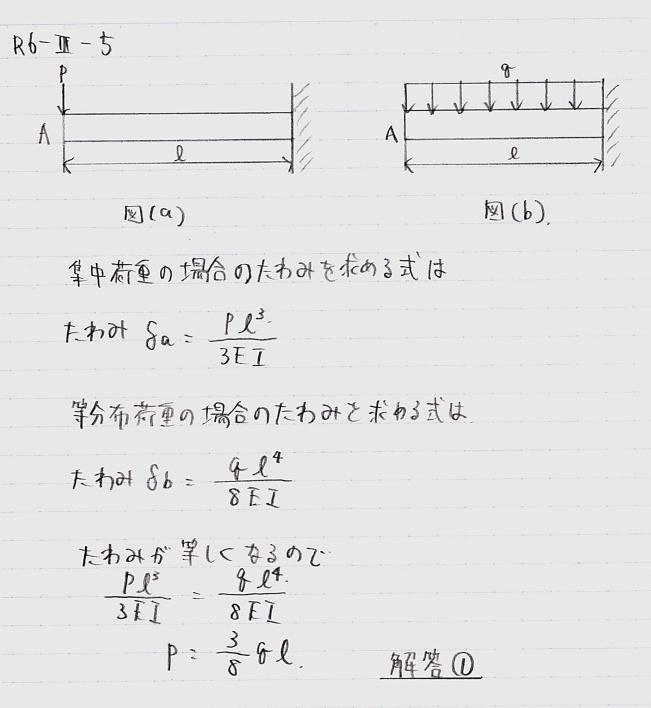 R6-Ⅲ-5
P
A
l
図(a)
q
A
l
図(b).
集中荷重の場合のたわみを求める式は
たわみ δa = Pl³/3EI
等分布荷重の場合のたわみを求める式は
たわみ δb = ql⁴/8EI
たわみが等しくなるので
Pl³/3EI = ql⁴/8EI
P = 3/8 ql.
解答①